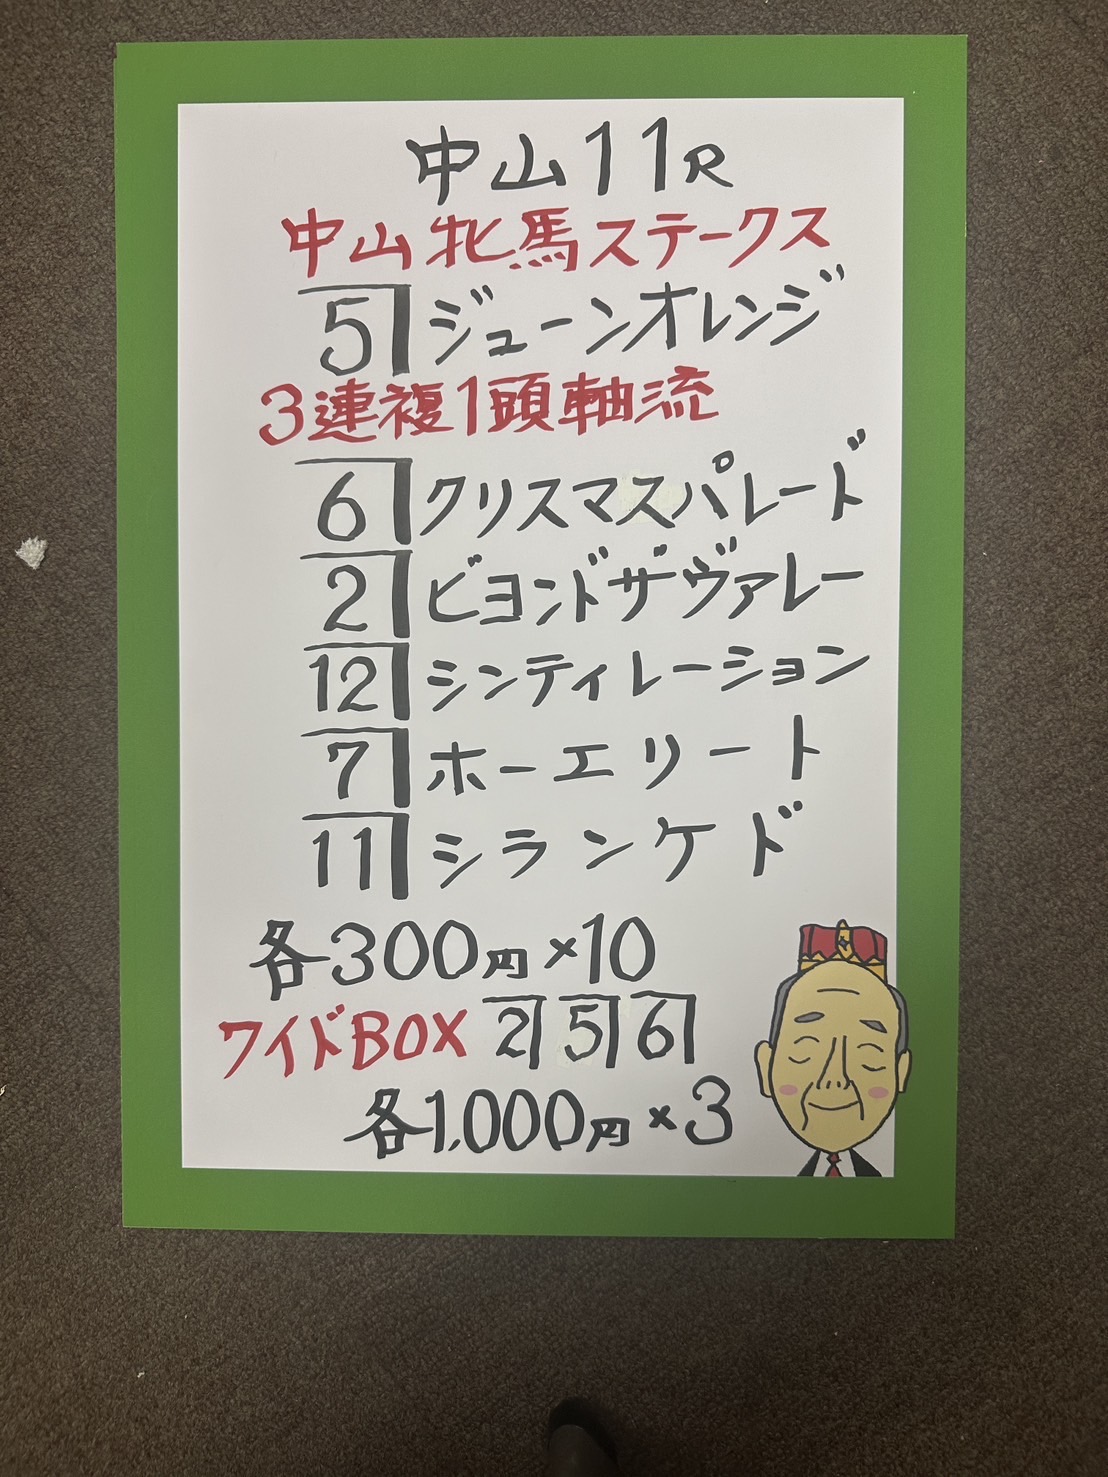 中山11R
中山牝馬ステークス
5 ジューンオレンジ
3連複1頭軸流
6 クリスマスパレード
2 ビヨンドザヴァレー
12 シンティレーション
7 ホーエリート
11 シランケド
各300円×10
ワイドBOX 2 5 6
各1,000円×3